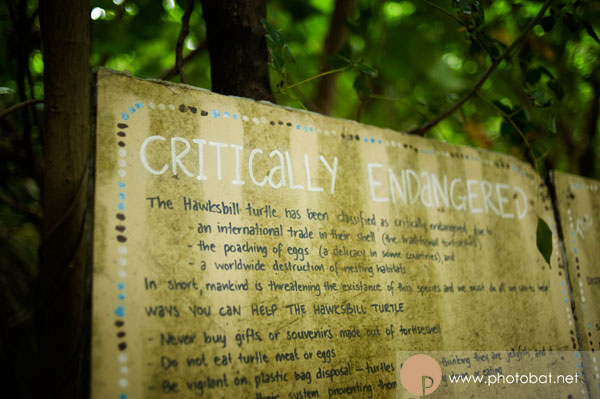 CRITICALLY ENDANGERED
The Hawksbill turtle has been classified as critically endangered due to
an international trade in their shell (the traditional 'tortiseshell')
- the poaching of eggs (a delicacy in some countries) and
- a worldwide destruction of nesting habitats
In short, mankind is threatening the existance of this species and we must do all we can to help
WAYS YOU CAN HELP THE HAWKSBILL TURTLE
- Never buy gifts or souvenirs made out of tortiseshell
- Do not eat turtle meat or eggs
- Be vigilant on plastic bag disposal - turtles thinking they are jellyfish and
their system preventing them or eating
p www.photobat.net